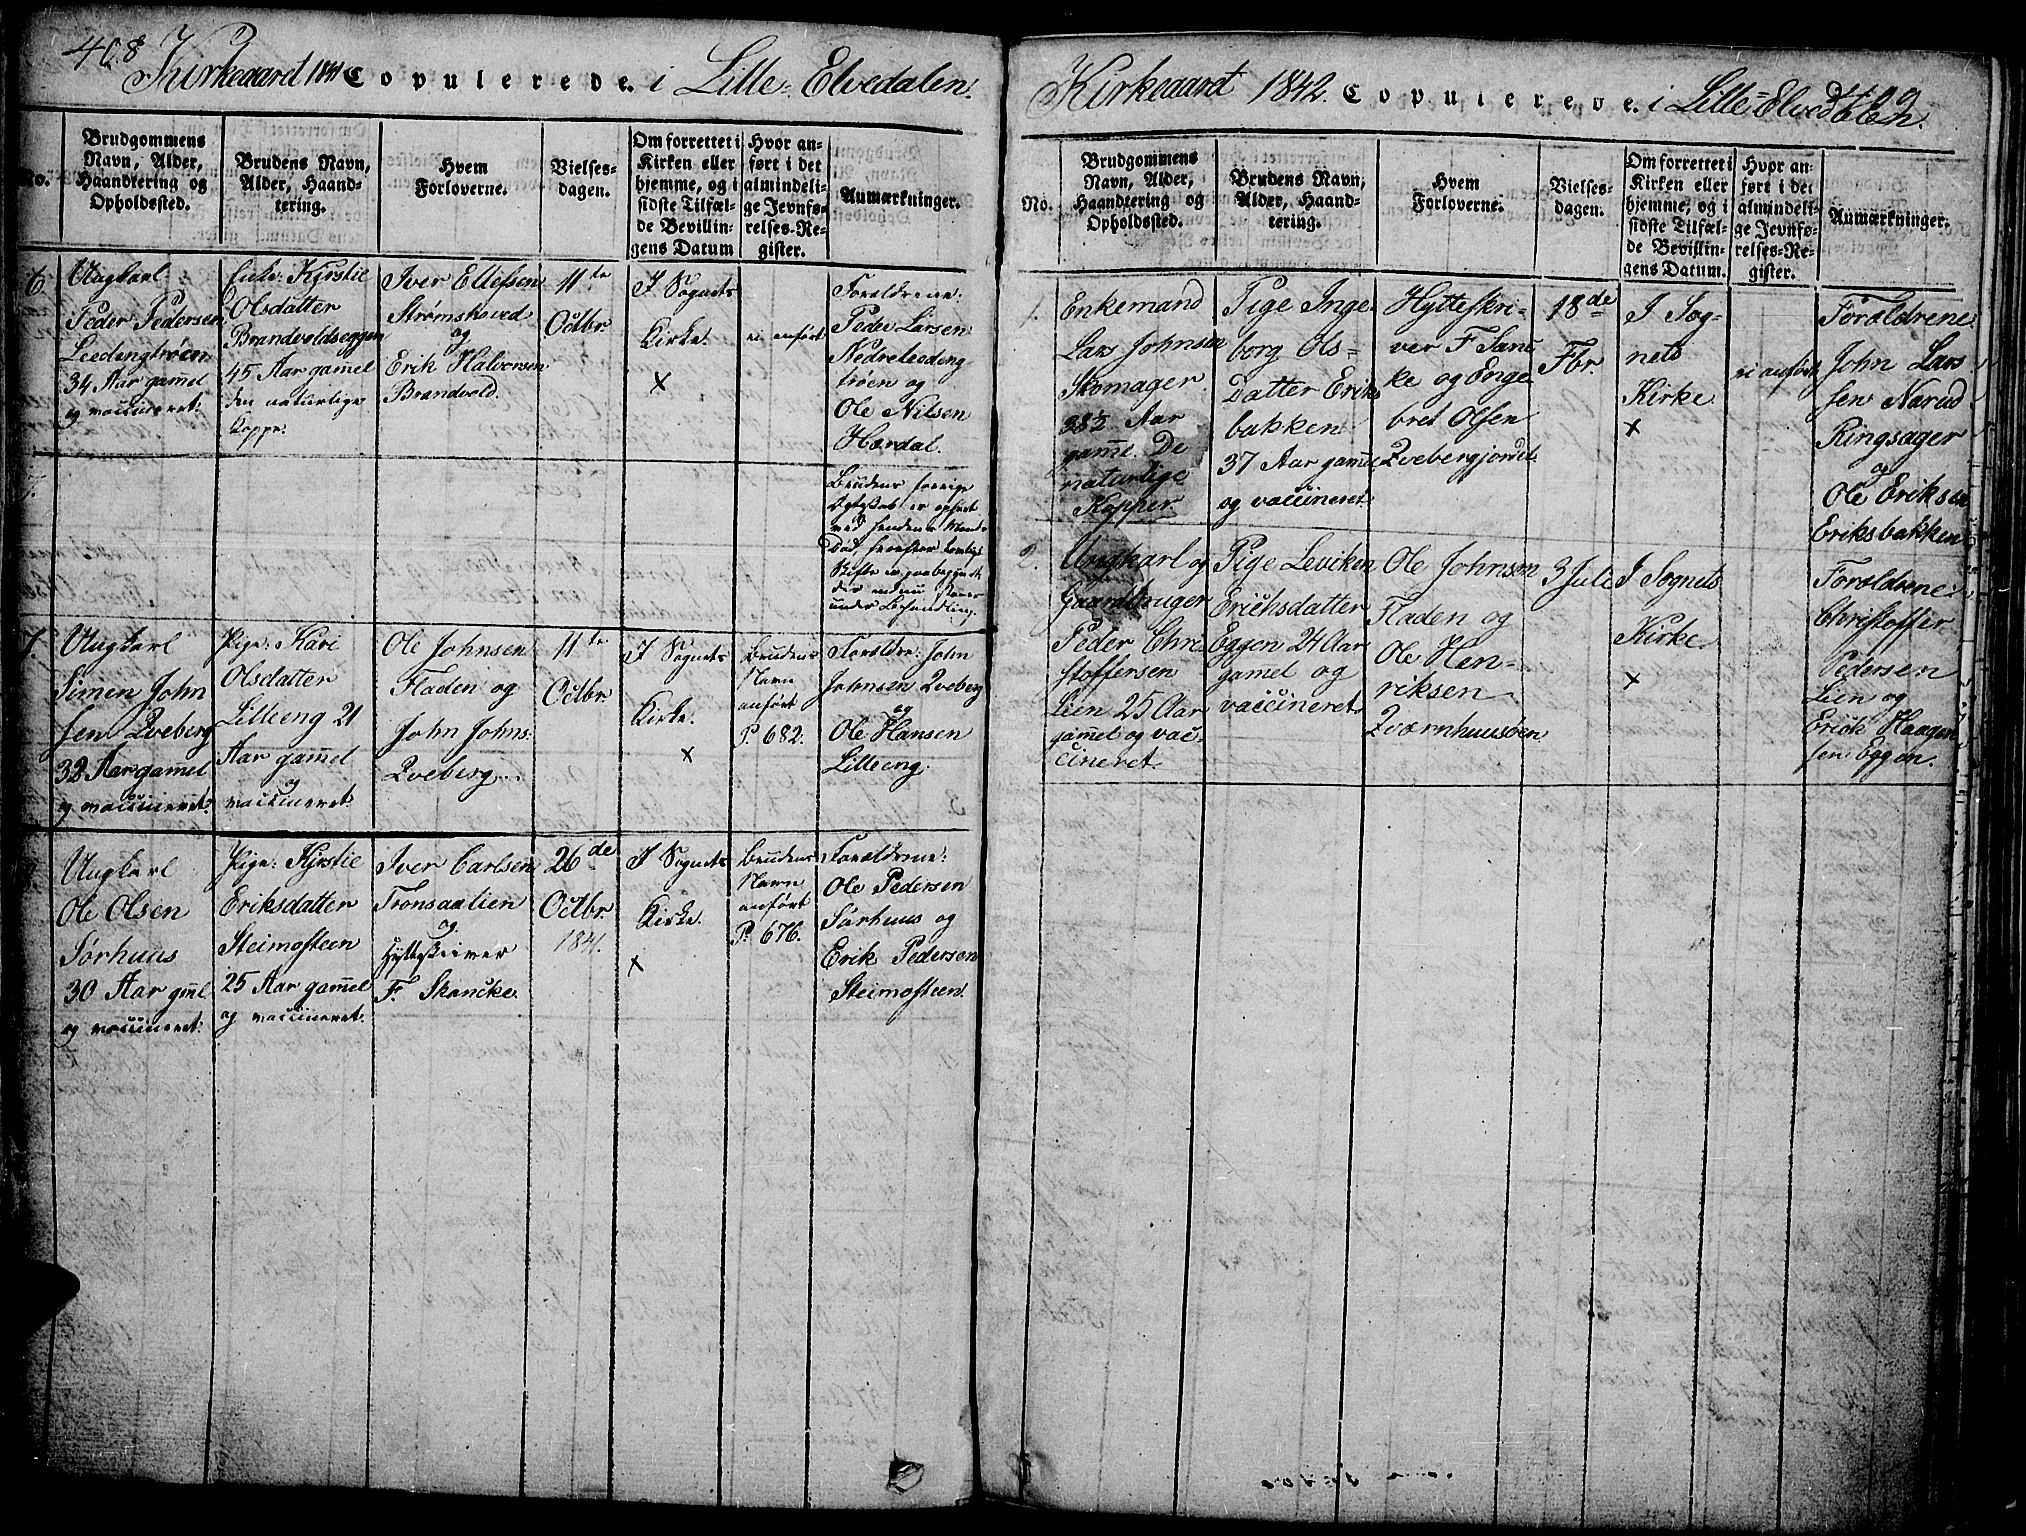 408 Kirkeaaret 1841 Copulerede. i Lille-Elvedalen.
No.
Brudgommens
Navn, Alder,
Haandtering og
Opholdssted.
Brudens Navn,
Alder, Haand-
tering.
Hvem
Forloverne.
Vielses-
dagen.
Om forrettet i
Kirken eller
hjemme, og i
sidste Tilfæl-
de Bevillin-
gens Datum
Hvor an-
ført i det
almindeli-
ge Jevnfø-
relses-Re-
gister.
Anmærkninger.
6.
Ungkarl
Peder Pedersen
Leedengtrøen
34 Aar gamel
og vaccineret.
Kyrstie
Olsdatter
Brandvoldseggen
45 Aar gamel
den naturlige
Koppe.
Iver Ellefsen
Strømshoved
og
Erik Halvorsen
Brandvold.
11te
Octbr
I Sognets
Kirke.
x
ei anført
Foraldrene:
Peder Larsen
Nedreleedeng-
trøen og
Ole Nilsen
Hærdal.
Brudens forrige
Ægteskab er ophørt
ved hendes Mands
Død, hvorefter lovligt
Skifte er paabegyndt
der endnu staaer
under Behandling.
7
Ungkarl
Simen John
sen Qveberg
32 Aar gamel
og vaccineret.
Pige: Kari
Olsdatter
Lilleeng 21
Aar gamel
og
vaccineret
Ole Johnsen
Fladen og
John Johns:
Qveberg.
11te
Octbr.
I Sognets
Kirke.
x
Brudens
Navn
anført
P. 682.
Foraldre: John
Johnsen Qveberg
og
Ole Hansen
Lilleeng.
Ungkarl
Ole Olsen
Sørhuus
30 Aar gml
og vaccineret.
Pige: Kyrstie
Eriksdatter
Steimosteen
25 Aar gamel
og vaccineret.
Iver Carlsen
Tronsaalien
og
Hytteskriver
F. Skancke.
26de
Octbr
1841.
I Sognets
Kirke.
x
Brudens
Navn
anført
P. 676.
Foraldrene:
Ole Pedersen
Sørhuus og
Erik Pedersen
Steimosteen.
Kirkeaaret 1842. Copulerede. i Lille-Elvedalen.
No.
Brudgommens
Navn, Alder,
Haandtering og
Opholdssted.
Brudens Navn,
Alder, Haand-
tering.
Hvem
Forloverne.
Vielses-
dagen.
Om forrettet i
Kirken eller
hjemme, og i
sidste Tilfæl-
de Bevillin-
gens Datum.
Hvor an-
ført i det
almindeli-
ge Jevnfø-
relses-Re-
gister.
Anmærkninger.
1.
Enkemand
Lars Johnsen
Skomager
38½ Aar
gamel. De
naturlige
Kopper.
Pige Inge
borg Ols-
Datter Eriks
bakken
37 Aar gamel
og vaccineret
Hytteskri-
ver F Skanc
ke og Enge
bret Olsen
Qvebergjordet
18de
Fbr.
I Sog-
nets
Kirke
x
ei anført
Foraldrene
John Lars
sen Narud
Ringsager
og
Ole Eriksen
Eriksbakken
2.
Ungkarl og
Gaardbruger
Peder Chri
stoffersen
Lien 25 Aar
gamel og vac-
cineret
Pige Leviken
Erichsdatter
Eggen 24 Aar
gamel og
vaccineret
Ole Johnsen
Fladen og
Ole Hen-
riksen
Qværnhuusøen
3 Juli
I Sognets
Kirke.
x
Foraldrene
Christoffer
Pedersen
Lien og
Erick Haagen
sen Eggen.